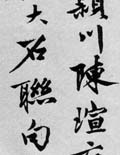 潁川陳瑄
大石聯句